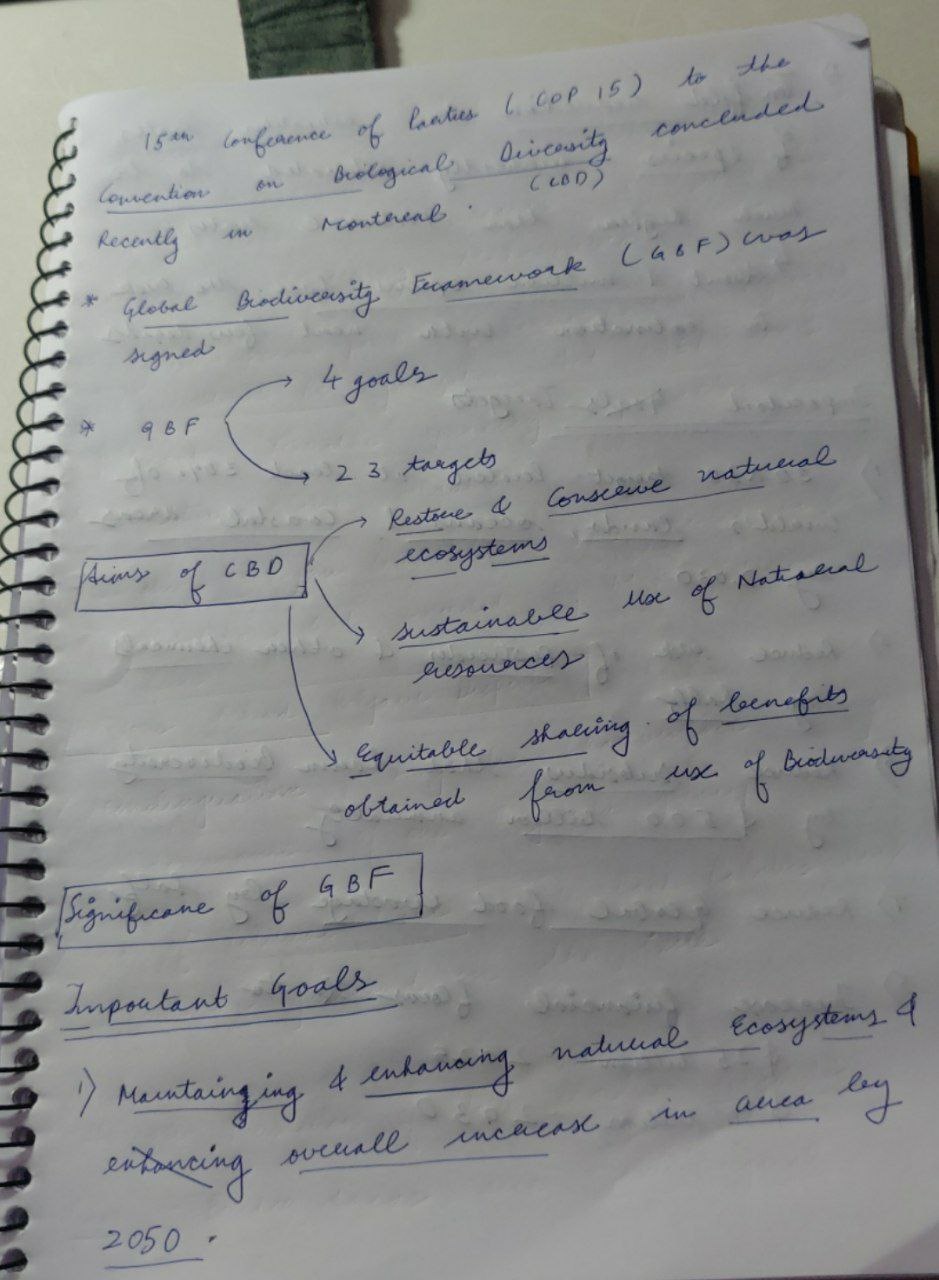 15th Conference of Parties (COP 15) to the
Convention on Biological Diversity concluded
(CBD)
Recently in Montreal.
* Global Biodiversity Framework (GBF) was
signed
* GBF
4 goals
23 targets
Aims of CBD
Restore & Conserve natural
ecosystems
sustainable use of Natural
resources
Equitable sharing of benefits
obtained from use of Biodiversity
Significane of GBF
Important Goals
1) Maintainging & enhancing natural Ecosystems &
enhancing overall increase in area by
2050.